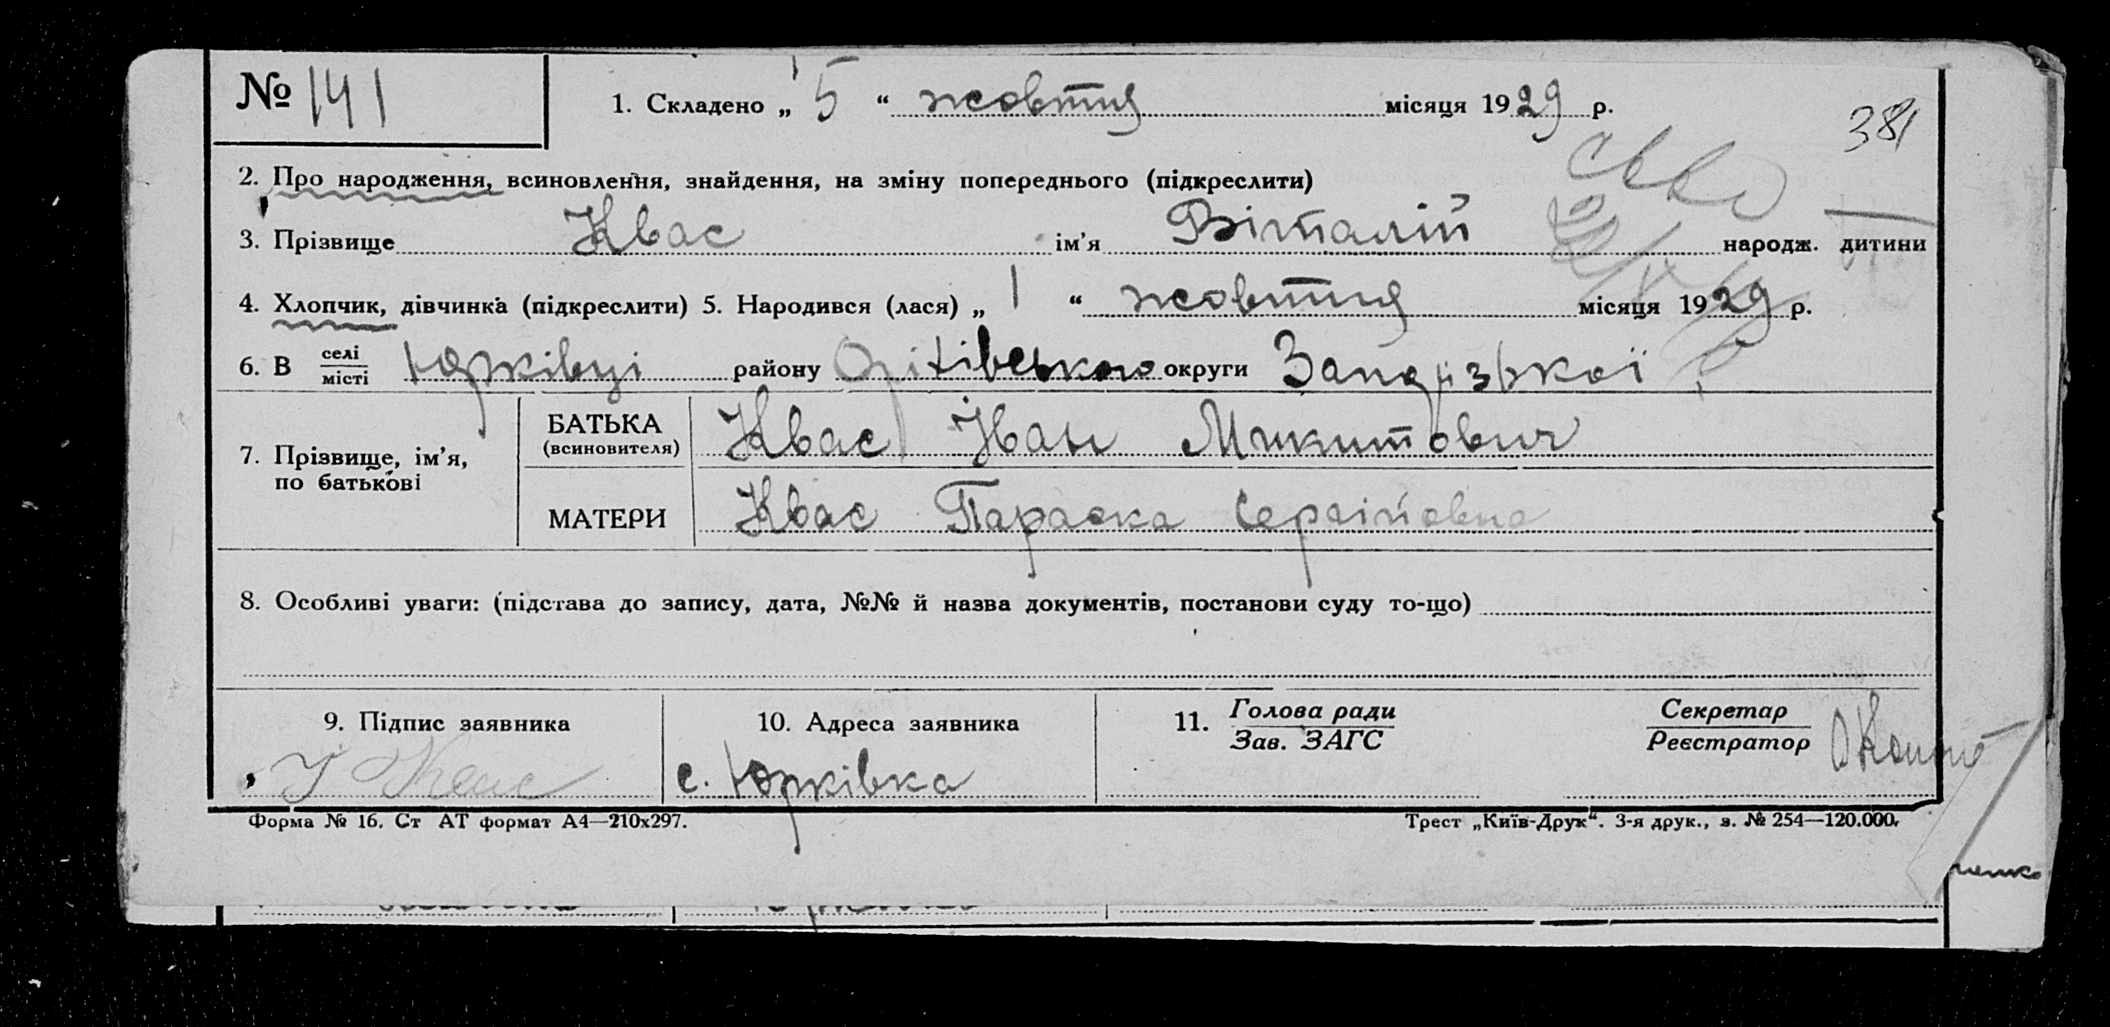 № 141
1. Складено „ 5 “ жовтня місяця 1929 р.
381
2. Про народження, всиновлення, знайдення, на зміну попереднього (підкреслити)
3. Прізвище Квас ім’я Віталій народж. дитини
4. Хлопчик, дівчинка (підкреслити) 5. Народився (лася) „ 1 “ жовтня місяця 1929 р.
6. В селі/місті Юрківці району Оріхівського округи Запорізької
7. Прізвище, ім’я, по батькові
БАТЬКА (всиновителя) Квас Іван Микитович
МАТЕРИ Квас Параска Сергійовна
8. Особливі уваги: (підстава до запису, дата, №№ й назва документів, постанови суду то-що)
9. Підпис заявника
І Квас
10. Адреса заявника
с. Юрківка
11. Голова ради
Зав. ЗАГС
Секретар
Реєстратор
Форма № 16. Ст АТ формат А4—210х297.
Трест „Київ-Друк“. 3-я друк., з. № 254—120.000.